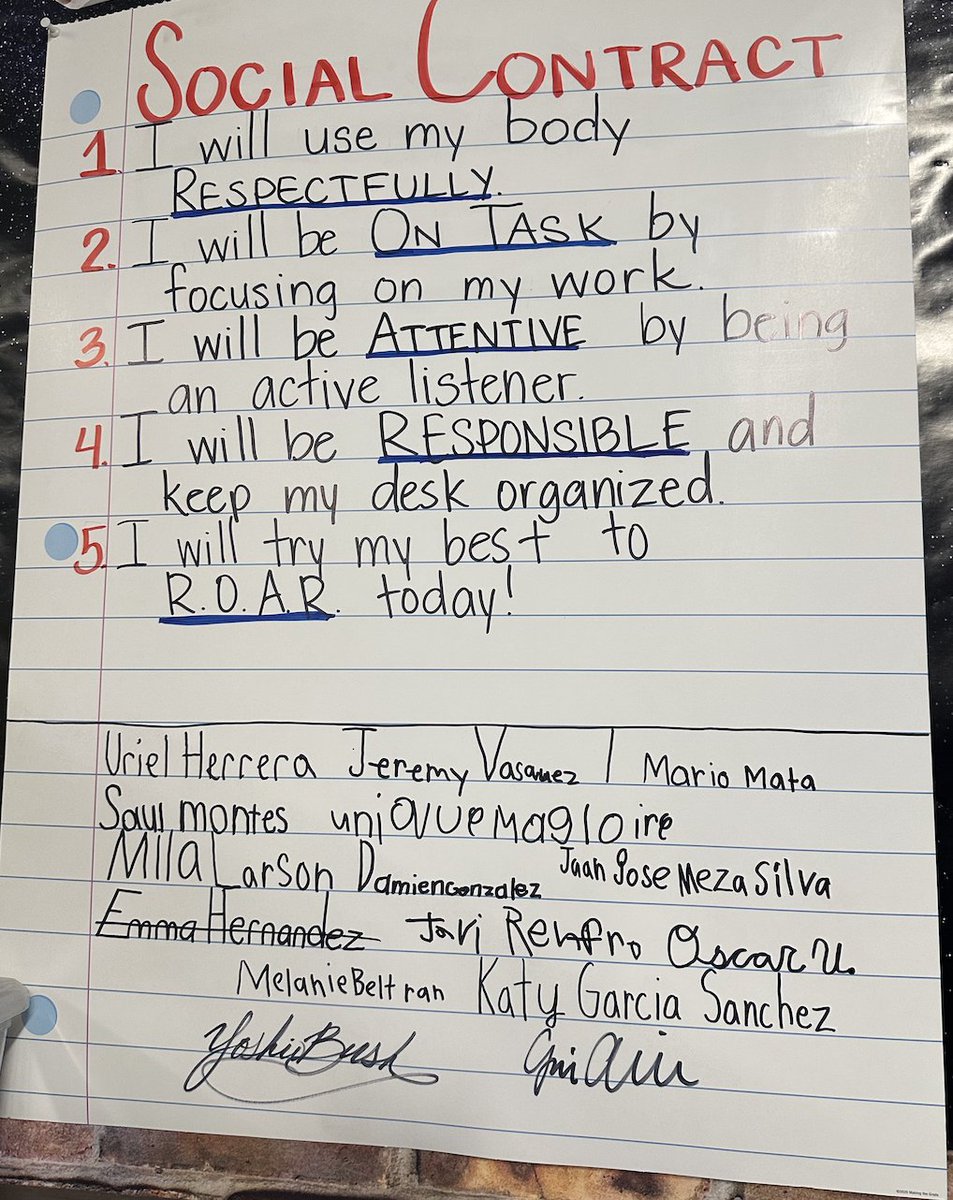 SOCIAL CONTRACT
1. I will use my body
RESPECTFULLY.
2. I will be ON TASK by
focusing on my work.
3. I will be ATTENTIVE by being
an active listener.
4. I will be RESPONSIBLE and
keep my desk organized.
5. I will try my best to
R.O.A.R. today!
Uriel Herrera Jeremy Vasquez Mario Mata
Saul montes uniqvue magloire
Mila Larson Damien Gonzalez Juan Jose Meza Silva
Emma Hernandez Javi Renfro Oscar U.
Melanie Beltran Katy Garcia Sanchez
Yoshie Bush